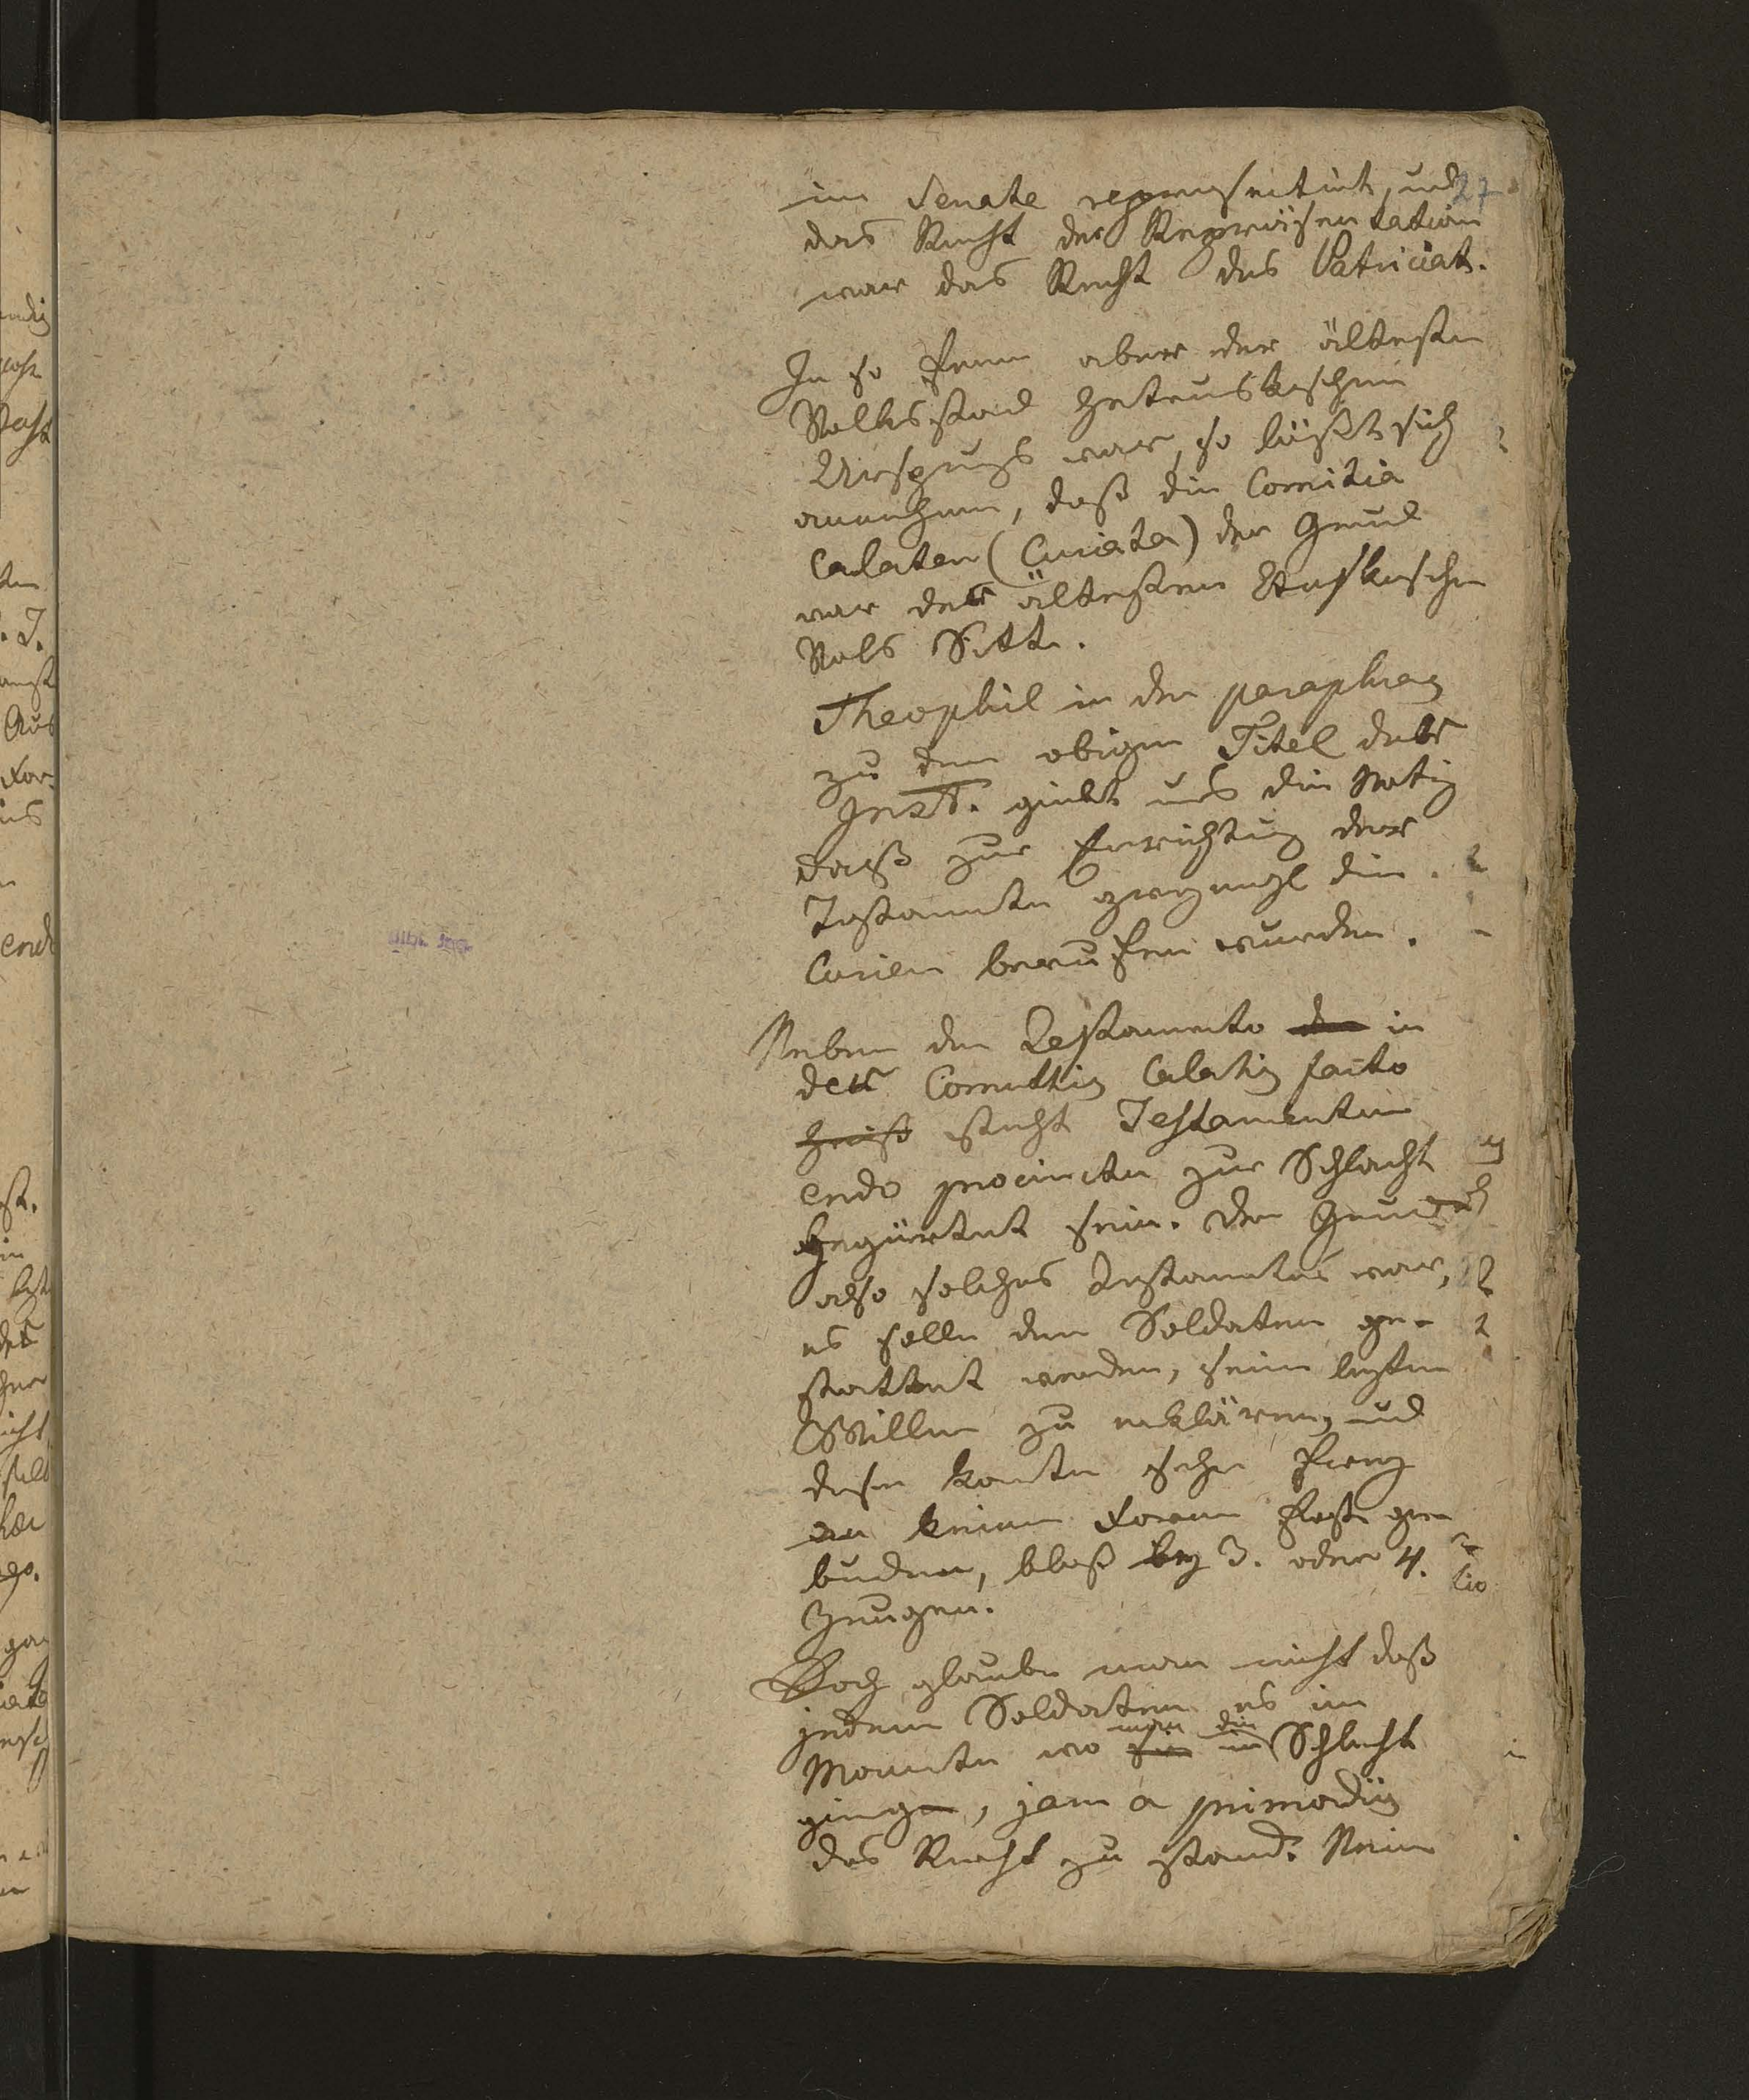 im Senate repräsentirt, und
27
das Recht der Repräsentation
war das Recht des Patriciats.
In so fern aber der älteste
Volksstand hetruskischen
Ursprungs war, so läßt sich
annehmen, daß die Comitia
Calaten (Curiata) der Grund
war der ältesten Etruskischen
Volks Sitte.
Theophil in der paraphras
zu dem obigen Titel der
Inst. giebt uns die Notiz
daß zur Errichtung der
Testamente zweymahl die
Curien berufen wurden.
Neben den Testamento in
den Comittiis Calatis facto
steht Testamentum
endo procinctu zur Schlacht
gegürtet sein. Der Grund
also solches Testamentes war,
es solle den Soldaten ge-
stattet werden, seinen lezten
Willen zu erklären, und
diesen konnte er frey
an keine Form fest ge-
bunden, bloß bey 3. oder 4.
Zeugen.
Doch glaube man nicht daß
jedem Soldaten es im
Momente wo man die Schlacht
ginge, jam a primordiis
das Recht zu stand. Nein